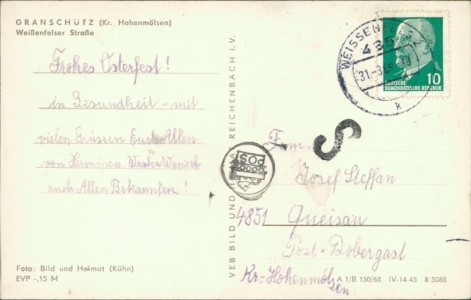 GRANSCHÜTZ (Kr. Hohenmölsen)
Weißenfelser Straße
Frohes Osterfest!
in Gesundheit - mit
vielen Grüssen Euch Allen
von Hermine
auch Allen Bekannten!
Foto: Bild und Heimat (Kühn)
EVP -,15 M
VEB BILD UND REICHENBACH i. V.
WEISSENF
485
31.-3.69
k
10
DEUTSCHE
DEMOKRATISCHE REPUBLIK
POST
S
Fam.
Josef Steffan
4851 Queisau
Post-Dobergast
Kr.-Hohenmölsen
A 1/B 150/68 IV-14-45 8/3088